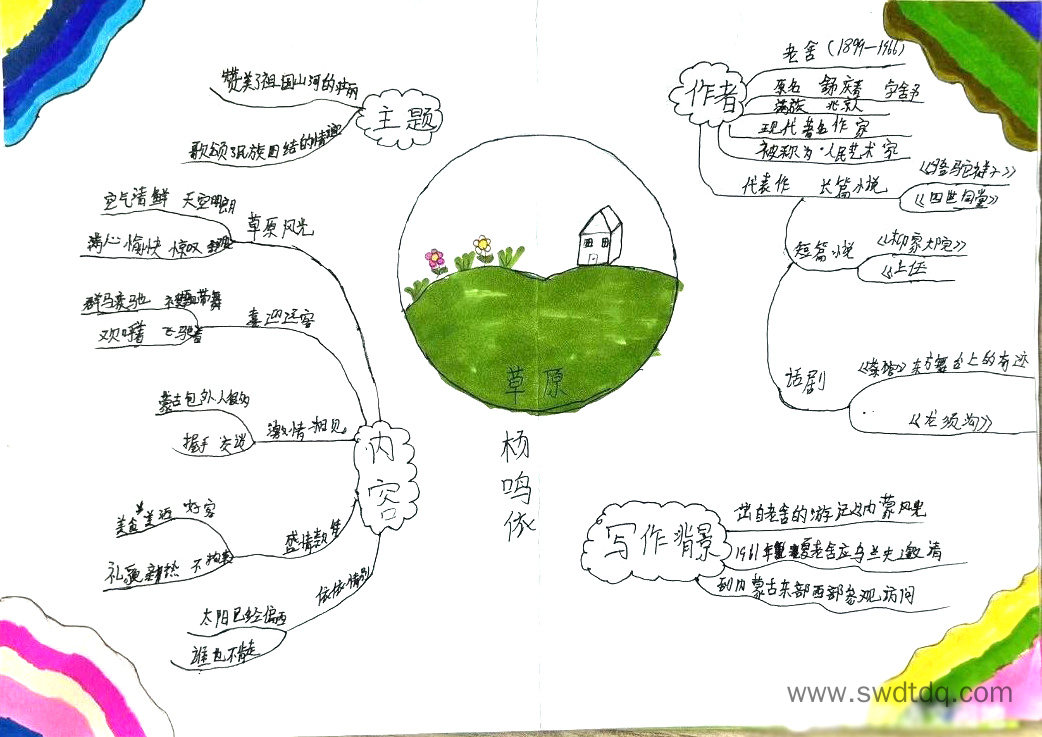 主题
赞美了祖国山河的壮丽
歌颂了民族团结的情谊
作者
老舍（1899—1966）
原名 舒庆春 字舍予
满族 北京人
现代著名作家
被称为"人民艺术家
代表作 长篇小说
《骆驼祥子》
《四世同堂》
短篇小说
《柳家大院》
《上任
话剧
《茶馆》东方舞台上的奇迹
《龙须沟》
草原
杨鸣依
内容
草原风光
空气清鲜 天空明朗
满心愉快 惊叹
喜迎远客
群马疾驰 襟飘带舞
欢呼着 飞驰着
激情相见
蒙古包外人很多
握手 交谈
盛情款待
美食 美酒 好客
礼貌 热 不拘束
依依惜别
太阳已经偏西
谁也不肯走
写作背景
出自老舍的游记内蒙风光
1961年夏老舍应乌兰夫邀请
到内蒙古东部西部参观访问
www.swdtdq.com